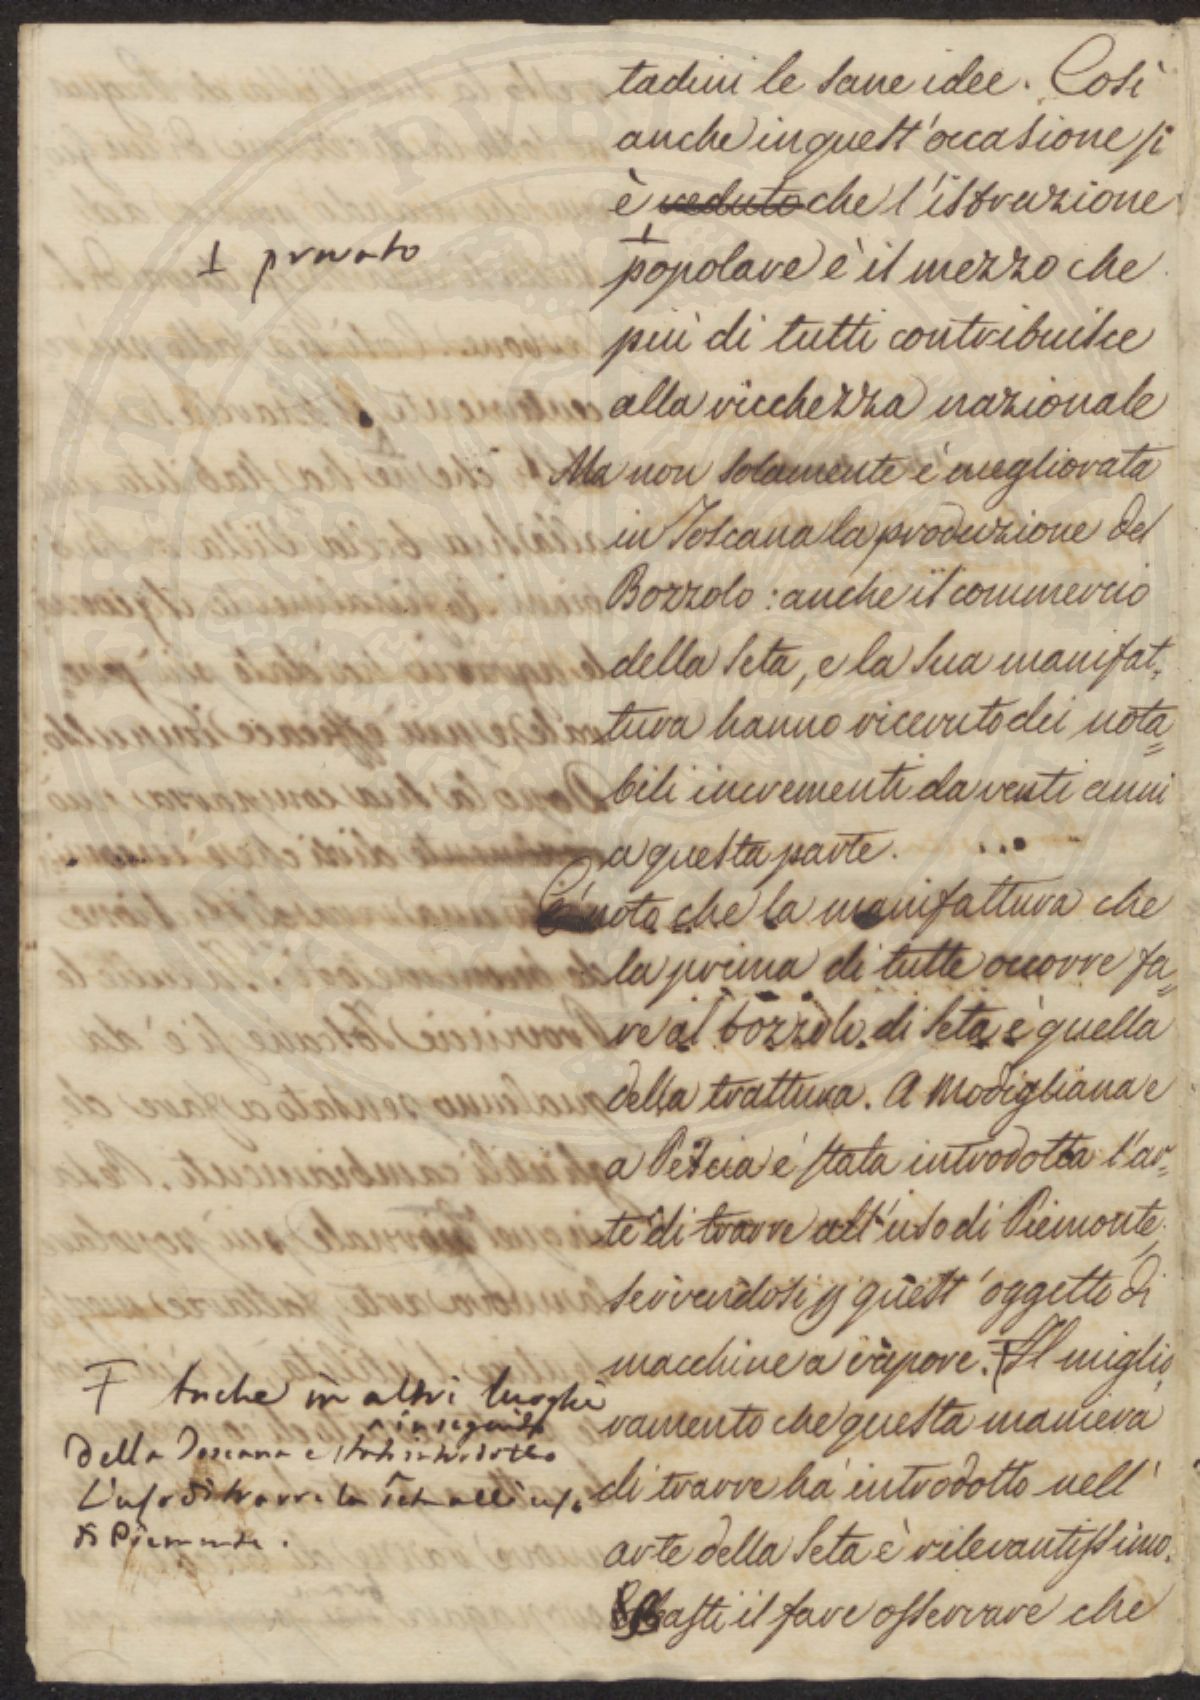 tadini le sane idee. Così
anche in quest'occasione si
è veduto che l'istruzione
⊥ provato
popolare è il mezzo che
più di tutti contribuisce
alla ricchezza nazionale
Ma non solamente è megliorata
in Toscana la produzione del
Bozzolo: anche il commercio
della Seta, e la Sua manifat=
tura hanno ricevuto dei nota=
bili incrementi da venti anni
a questa parte.
È noto che la manifattura che
la prima di tutte occorre fa=
re al bozzolo di Seta è quella
della trattura. A Modigliana e
a Pescia è stata introdotta l'ar=
te di trarre all'uso di Piemonte
servendosi p quest'oggetto di
macchine a vapore. F Il miglio=
ramento che questa maniera
di trarre ha introdotto nell'
arte della Seta è rilevantissimo.
Basti il fare osservare che
F Anche in altri luoghi
in seguito
della Toscana è stato introdotto
L'uso di trarre la seta all'uso
di Piemonte.